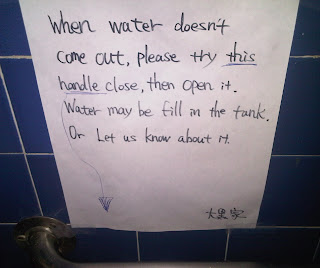 When water doesn't
come out, please try this
handle close, then open it.
Water may be fill in the tank.
Or Let us know about it.
大黒家